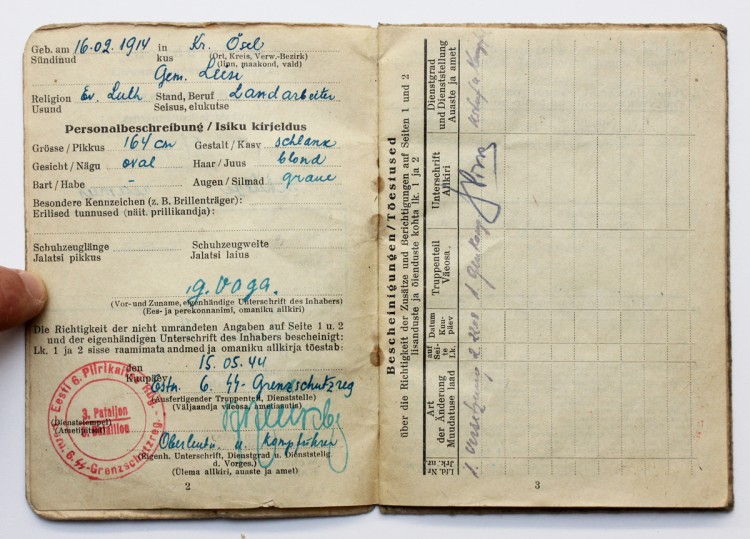 Geb. am 16.02.1914 in Kr. Ösel
Sündinud kus (Ort, Kreis, Verw.-Bezirk)
(linn, maakond, vald)
Gem. Leisi
Religion Ev. Luth Stand, Beruf Landarbeiter
Usund Seisus, elukutse
Personalbeschreibung / Isiku kirjeldus
Grösse / Pikkus 164 cm Gestalt / Kasv schlank
Gesicht / Nägu oval Haar / Juus blond
Bart / Habe - Augen / Silmad graue
Besondere Kennzeichen (z. B. Brillenträger):
Erilised tunnused (näit. prillikandja):
Schuhzeuglänge Schuhzeugweite
Jalatsi pikkus Jalatsi laius
g. Voga.
(Vor- und Zuname, eigenhändige Unterschrift des Inhabers)
(Ees- ja perekonnanimi, omaniku allkiri)
Die Richtigkeit der nicht umrandeten Angaben auf Seite 1 u. 2
und der eigenhändigen Unterschrift des Inhabers bescheinigt:
Lk. 1 ja 2 sisse raamimata andmed ja omaniku allkirja tõestab:
den 15.05.44
Kuupäev
Estn. 6. SS-Grenzschutzreg
(Ausfertigender Truppenteil, Dienststelle)
(Väljaandja väeosa, ametiasutis)
(Dienststempel)
(Ametipitsat)
Eesti 6. Piirikaitse Rüg.
3. Pataljon
3. Bataillon
Estn. 6. SS-Grenzschutzreg.
Oberleutn u. Kompführer
(Eigenh. Unterschrift, Dienstgrad u. Dienststellg.
d. Vorges.)
(Ülema allkiri, auaste ja amet)
2
Bescheinigungen / Tõestused
über die Richtigkeit der Zusätze und Berichtigungen auf Seiten 1 und 2
lisanduste ja õienduste kohta lk. 1 ja 2
Lfd. Nr
Jrk. nr.
Art
der Änderung
Muudatuse laad
auf
Sei-
te
Lk.
Datum
Kuu-
päev
Truppenteil
Väeosa.
Unterschrift
Allkiri
Dienstgrad
und Dienststellung
Auaste ja amet
1. Versetzung 2.
3